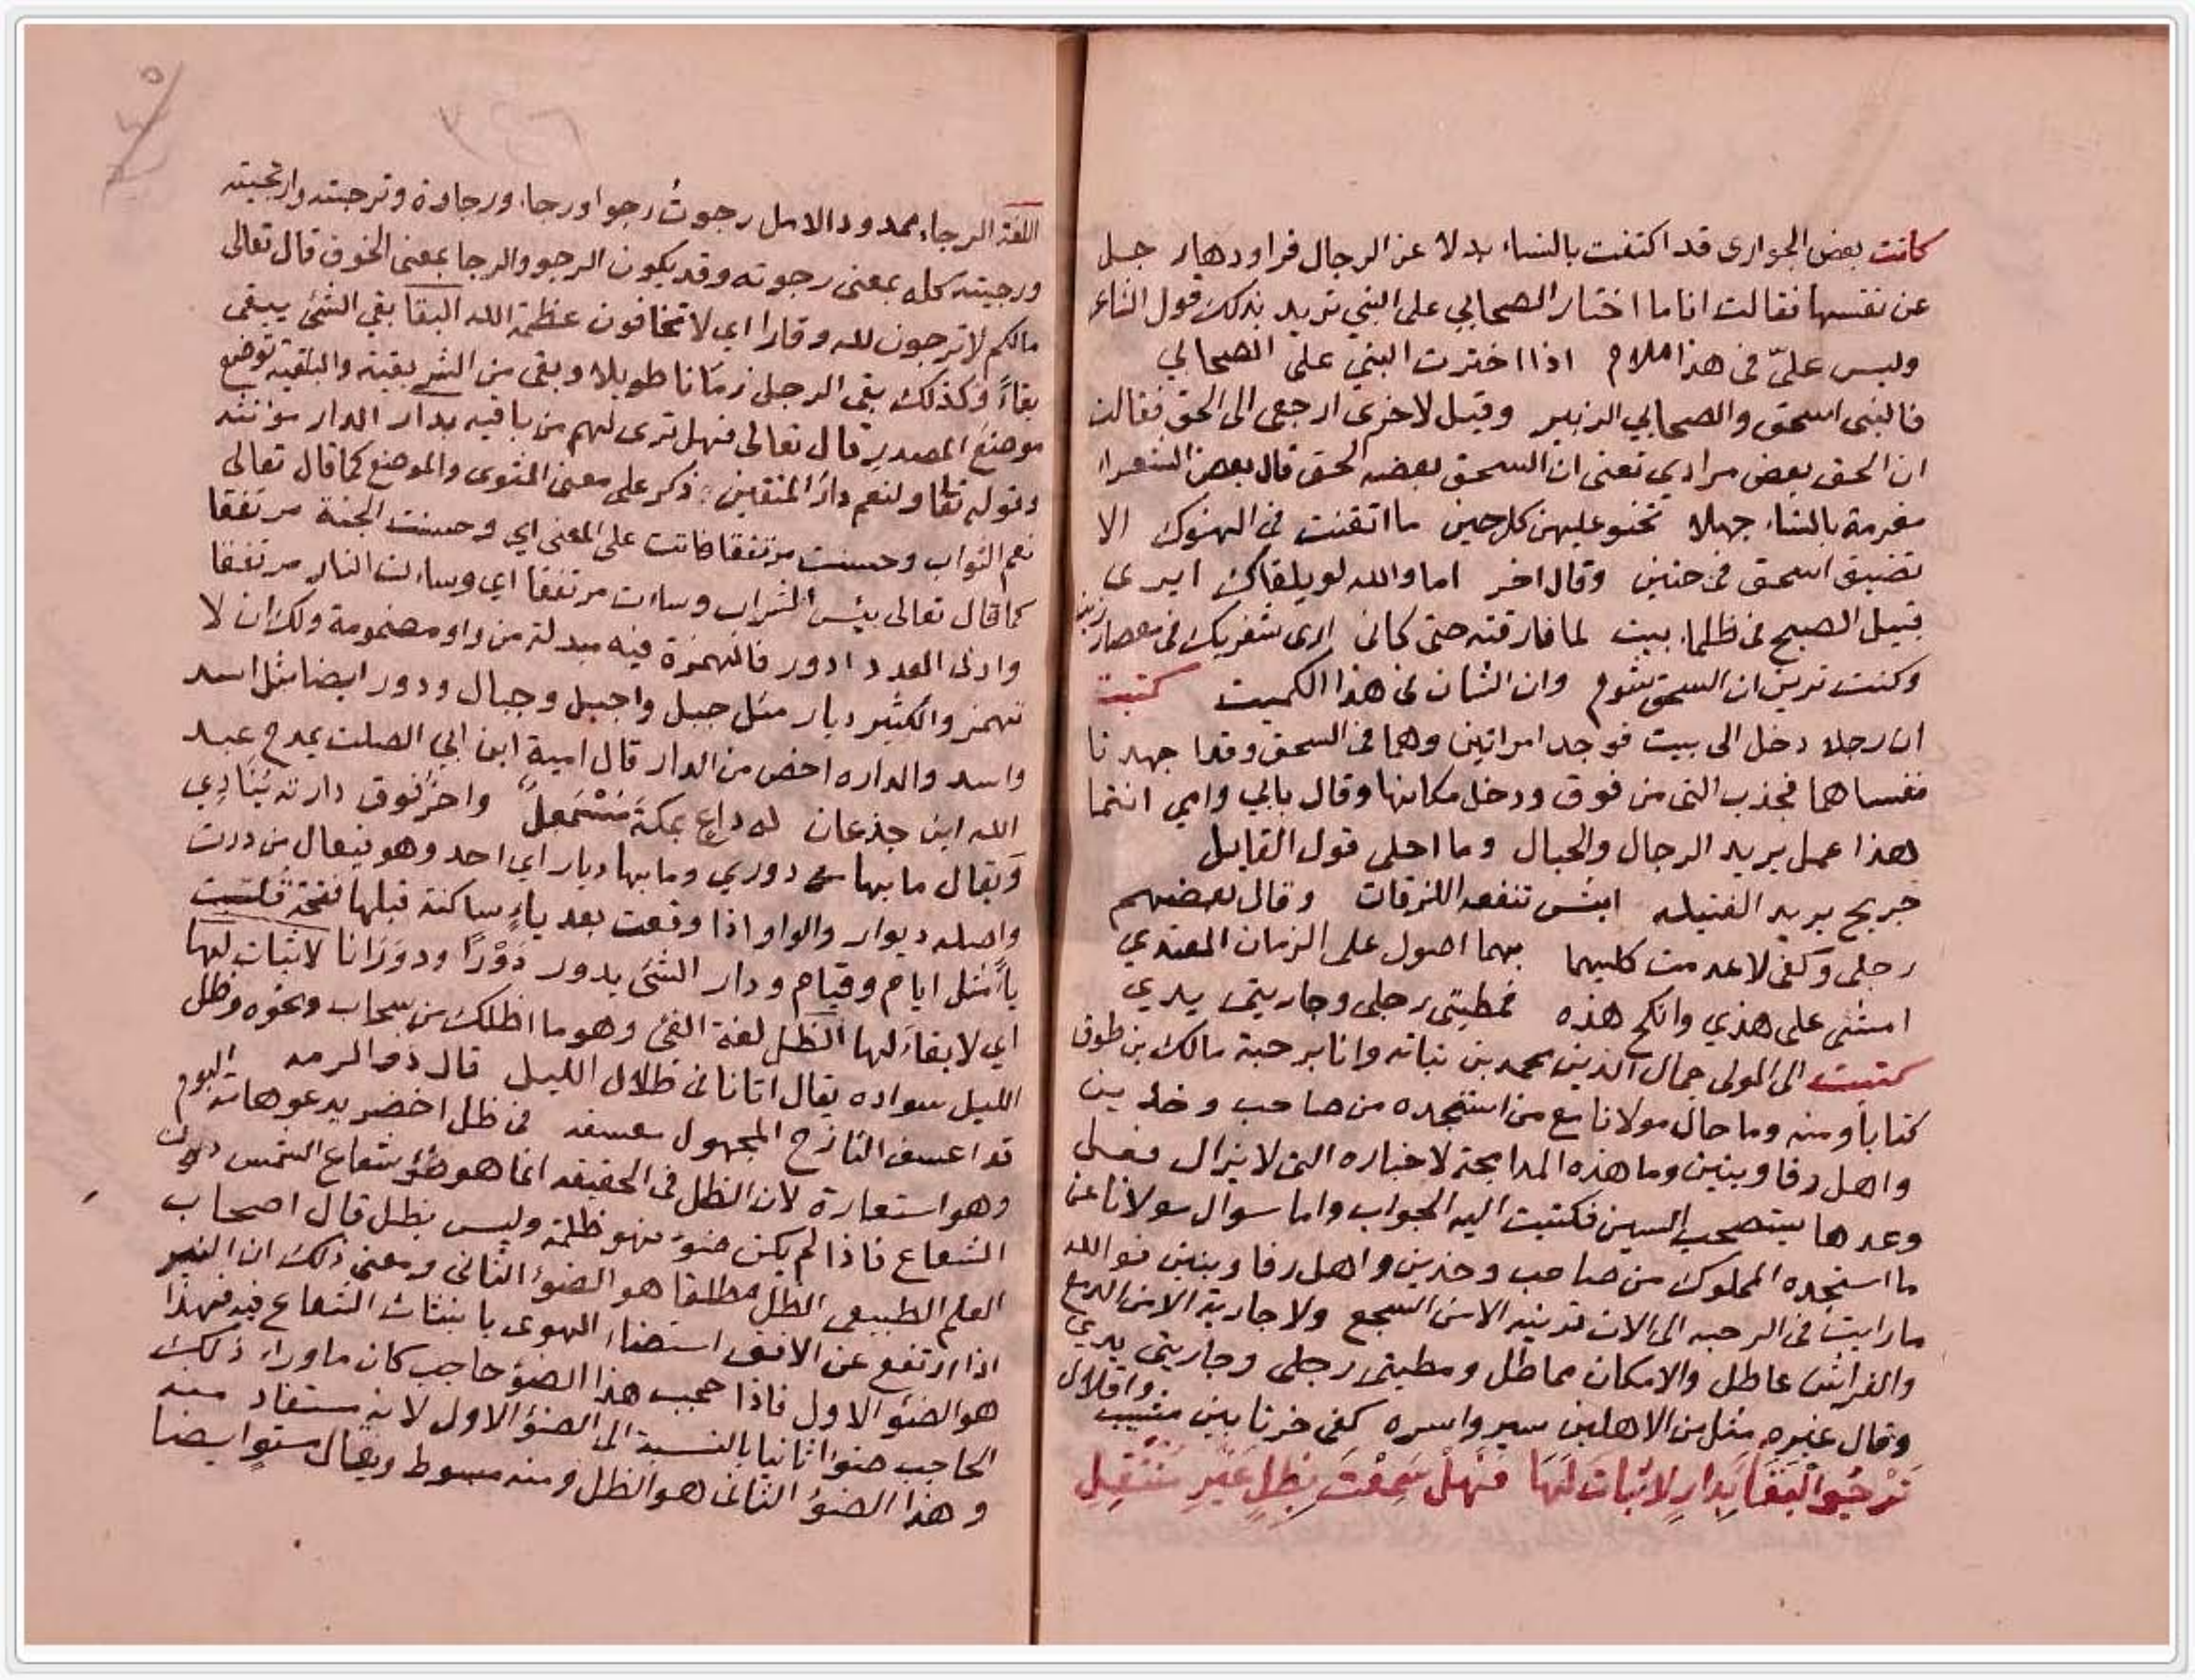 كانت بعض الجوارى قد اكتفت بالنساء بدلا عن الرجال فراودها رجل
عن نفسها فقالت انا ما اختار الصحابي على النبي تريد بذلك قول الشاعر
وليس عليّ فى هذا ملام اذا اخترت النبي على الصحابي
فالنبى السحق والصحابي الزبير وقيل لاخرى ارجعى الى الحق فقالت
ان الحق بعض مرادي تعنى ان السحق بعضه الحق قال بعض الشعراء
مغرمة بالنساء جهلا تحنو عليهن كل حين ما اتقنت فى الهنوك الا
تضييق اسحق فى حنين وقال اخر اما والله لو يلقاك ايرى
قبيل الصبح فى ظلماء بيت لما فارقته حتى كانى ارى شفريك فى معصار زيت
وكنت ترين ان السحق شوم وان الشان فى هذا الكميت كتبت
ان رجلا دخل الى بيت فوجد امراتين وهما فى السحق وقد اجهدتا
نفسا هما فجذب التى من فوق ودخل مكانها وقال بابي وامي انتما
هذا عمل يريد الرجال والحبال وما احلى قول القايل
جريح يريد الفتيله ايش تنفعه اللزقات وقال بعضهم
رجلى وكفى لاعدمت كليهما بهما اصول على الزمان المعتدي
امشى على هذي وانكح هذه فمطيتى رجلى وجاريتى يدي
كتبت الى المولى جمال الدين محمد بن نباته وانا برحبة مالك بن طوق
كتابا ومنه وما حال مولانا مع من استنجده من صاحب وخدين
واهل رفا وبنين وما هذه المدابحة لاخباره التى لا يزال فعلى
وعدها يستصحب السين فكتبت اليه الجواب واما سوال مولانا عن
ما استنجده المملوك من صاحب وخدين واهل رفا وبنين فوالله
ما رايت فى الرحبه الى الان قدينه الا من السجع ولا جارية الا من الدمع
والفراش عاطل والامكان مماطل ومطيتى رجلى وجاريتى يدي
وقال غيره مثل من الاهلين سير واسره كفى حزنا بين مشيب واقلال
تَرْجُو الْبَقَا بِدَارٍ لاثَبَاتَ لَهَا فَهَلْ سَمِعْتَ بِظِلٍ غَيْرِ مُنْتَقِلِ
اللغة الرجاء ممدود الامل رجوتُ رجوا ورجاء ورجاوة وترجيته وارتجيته
ورجيته كله بمعنى رجوته وقد يكون الرجو والرجا بمعنى الخوف قال تعالى
مالكم لا ترجون لله وقارا اي لا تخافون عظمة الله البقا بقي الشئ يبقى
بقاءً وكذلك بقى الرجل زمانا طويلا وبقى من الشئ بقية والبقية توضع
موضع المصدر قال تعالى فهل ترى لهم من باقيه بدار الدار مؤنثه
وقوله تعا ولنعم دار المتقين ذكر على معنى المثوى والموضع كما قال تعالى
نعم الثواب وحسنت مرتفقا فانت على المعنى اي وحسنت الجنة مرتفقا
كما قال تعالى بئس الشراب وساءت مرتفقا اي وساءت النار مرتفقا
وادنى العدد ادور فالهمزة فيه مبدلة من واو مضمومة ولك ان لا
تهمز والكثير ديار مثل جبل واجبل وجبال ودور ايضا مثل اسد
واسد والداره اخص من الدار قال امية ابن ابي الصلت يمدح عبد
الله ابن جذعان له داع بمكةَ مُشْمَعِلٌ واخر فوق دارته يُنَادِي
ويقال ما بها دوري وما بها ديار اي احد وهو فيعال من درت
واصله ديوار والواو اذا وقعت بعد ياءٍ ساكنة قبلها فتحة قلبت
ياً مثل ايام وقيام ودار الشئ يدور دَوْرًا ودوَرَانا لاثبات لها
اي لا بقاء لها الظل لغة الفئ وهو ما اظلك من سحاب ونحوه وظل
الليل سواده يقال اتانا فى ظلال الليل قال ذو الرمه
قد اعسف النازح المجهول معسفه فى ظل اخضر يدعو هامته البوم
وهو استعارة لان الظل فى الحقيقه انما هو ضوء شعاع الشمس دون
الشعاع فاذا لم يكن ضوء فهو ظلمة وليس بظل قال اصحاب
العلم الطبيعى الظل مطلقا هو الضوء الثانى ومعنى ذلك ان النير
اذا ارتفع عن الافق استضاء الهوى باثبتات الشعاع فيه فهذا
هو الضوء الاول فاذا حجب هذا الضوء حاجب كان ما وراء ذلك
الحاجب ضوءا ثانيا بالنسبة الى الضوء الاول لانه مستفاد منه
وهذا الضوء الثانى هو الظل ومنه مبسوط ويقال مستوٍ ايضا